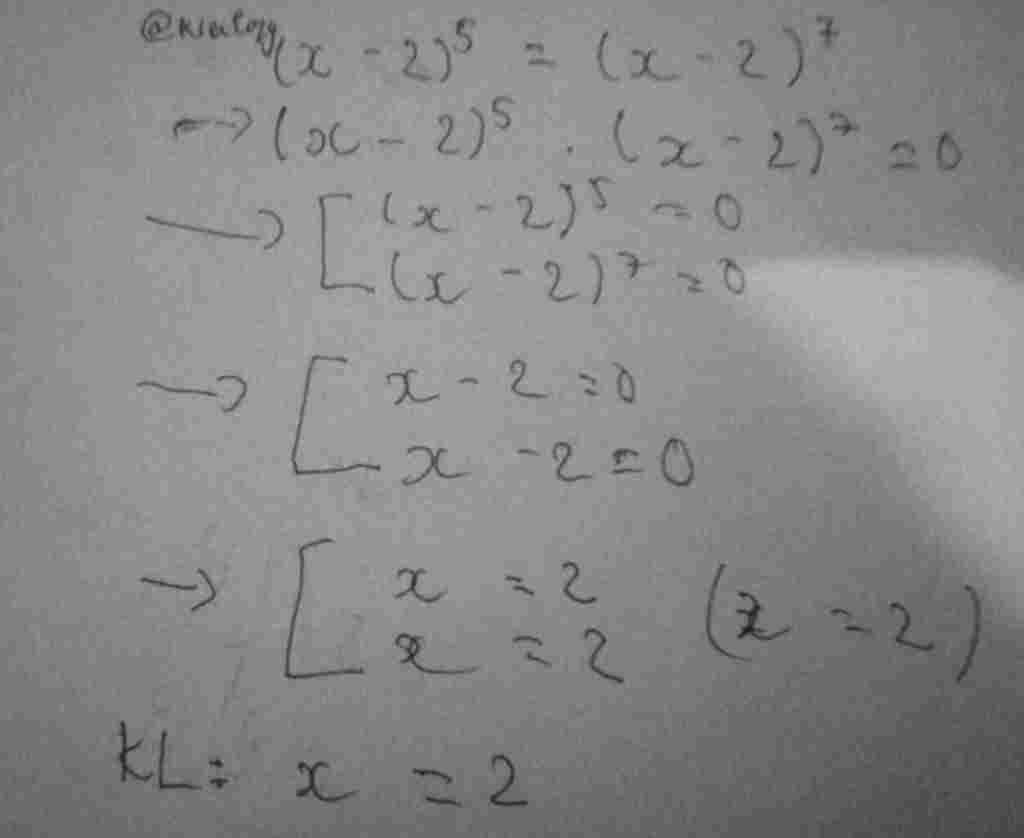 (x - 2)⁵ = (x - 2)⁷
→ (x - 2)⁵ . (x - 2)⁷ = 0
→ [ (x - 2)⁵ = 0
(x - 2)⁷ = 0
→ [ x - 2 = 0
x - 2 = 0
→ [ x = 2
x = 2 (x = 2)
KL: x = 2